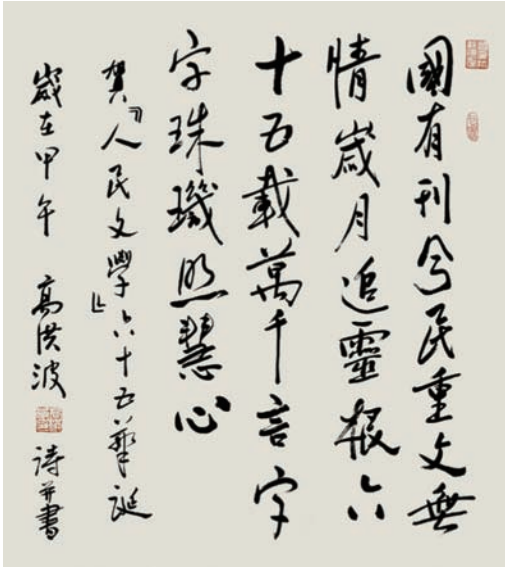 國有刊兮民重文無
情歲月追靈根六
十五載萬千言字
字珠璣照慧心
賀『人民文學』六十五華誕
歲在甲午 高洪波 詩并書